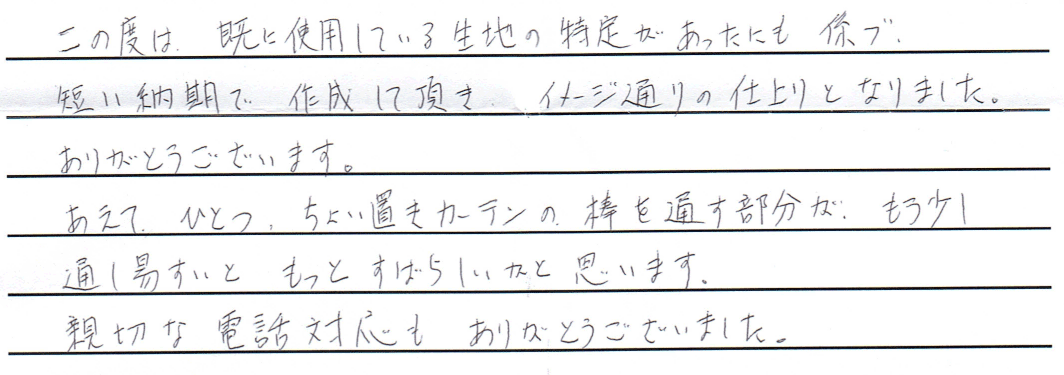 この度は、既に使用している生地の特定があったにも係ず、
短い納期で作成して頂き、イメージ通りの仕上りとなりました。
ありがとうございます。
あえて、ひとつ、ちょい置きカーテンの棒を通す部分が、もう少し
通し易すいともっとすばらしいかと思います。
親切な電話対応もありがとうございました。